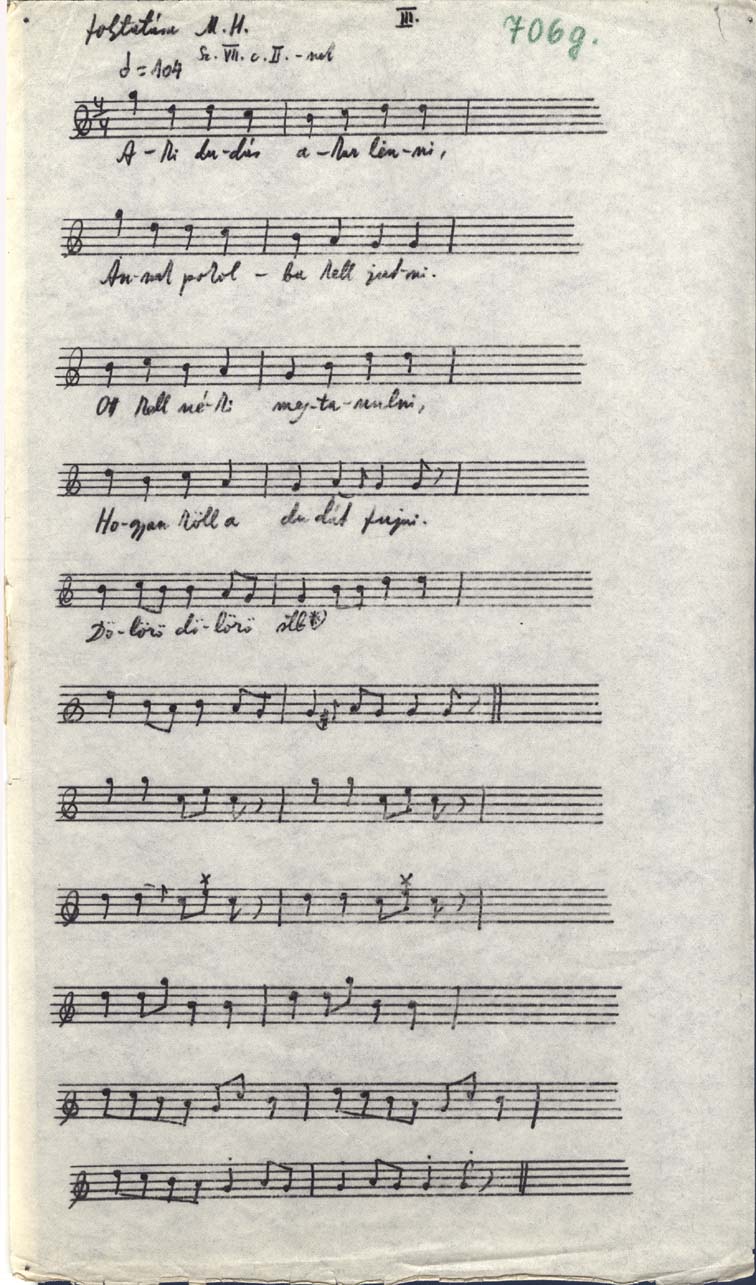 folytatása M.H. III. 706g.
♩=104 Sz. VII. c. II. -nek
4/4
A-ki du-dás a-kar lën-ni,
An-nak pokol-ba kell jut-ni.
Ott kell né-ki meg-ta-nulni,
Ho-gyan köll a du-dát fujni.
Dö-lörö dö-lörö stb